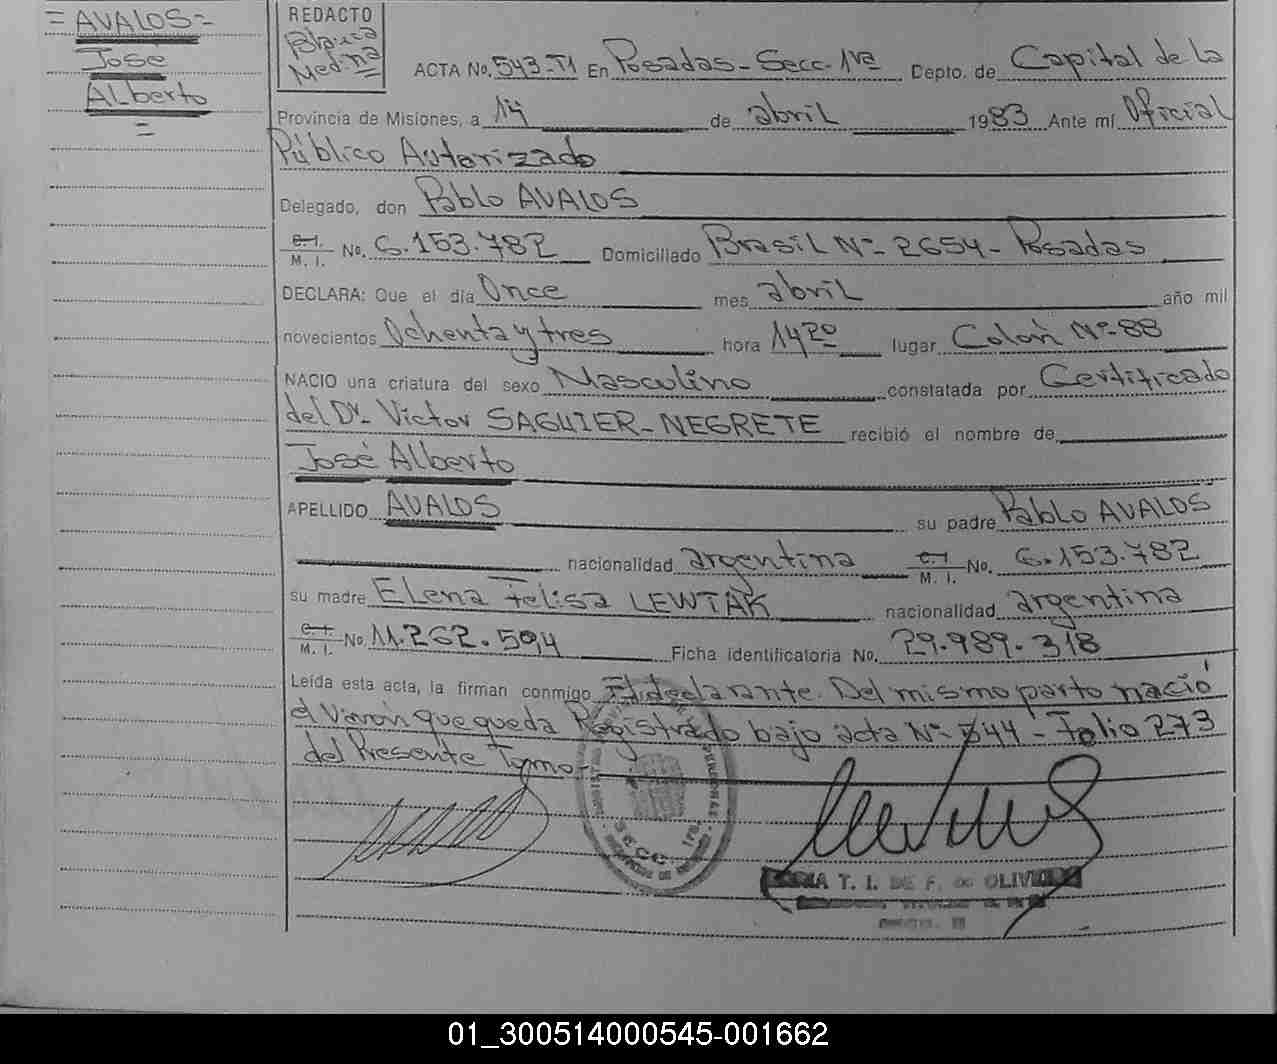 = AVALOS =
José
Alberto
=
REDACTO
Blanca
Medina
ACTA No. 543-T1 En Posadas - Secc. 1ra Depto. de Capital de la
Provincia de Misiones, a 14 de abril 1983 Ante mí Oficial
Público Autorizado
Delegado, don Pablo AVALOS
C. I.
M. I. No. 6.153.782 Domiciliado Brasil Nº 2654 - Posadas
DECLARA: Que el día Once mes abril año mil
novecientos Ochenta y tres hora 14 20 lugar Colón Nº 88
NACIO una criatura del sexo Masculino constatada por Certificado
del Dr. Victor SAGUIER-NEGRETE recibió el nombre de
José Alberto
APELLIDO AVALOS su padre Pablo AVALOS
nacionalidad argentina C. I.
M. I. No. 6.153.782
su madre Elena Felisa LEWTAK nacionalidad argentina
C. I.
M. I. No. 11.262.504 Ficha identificatoria No. 29.989.318
Leída esta acta, la firman conmigo El declarante. Del mismo parto nació
el Varón que queda Registrado bajo acta Nº 544 - Folio 273
del Presente Tomo
SECC. 1ra.
T. I. DE F. de OLIVEIRA
01_300514000545-001662